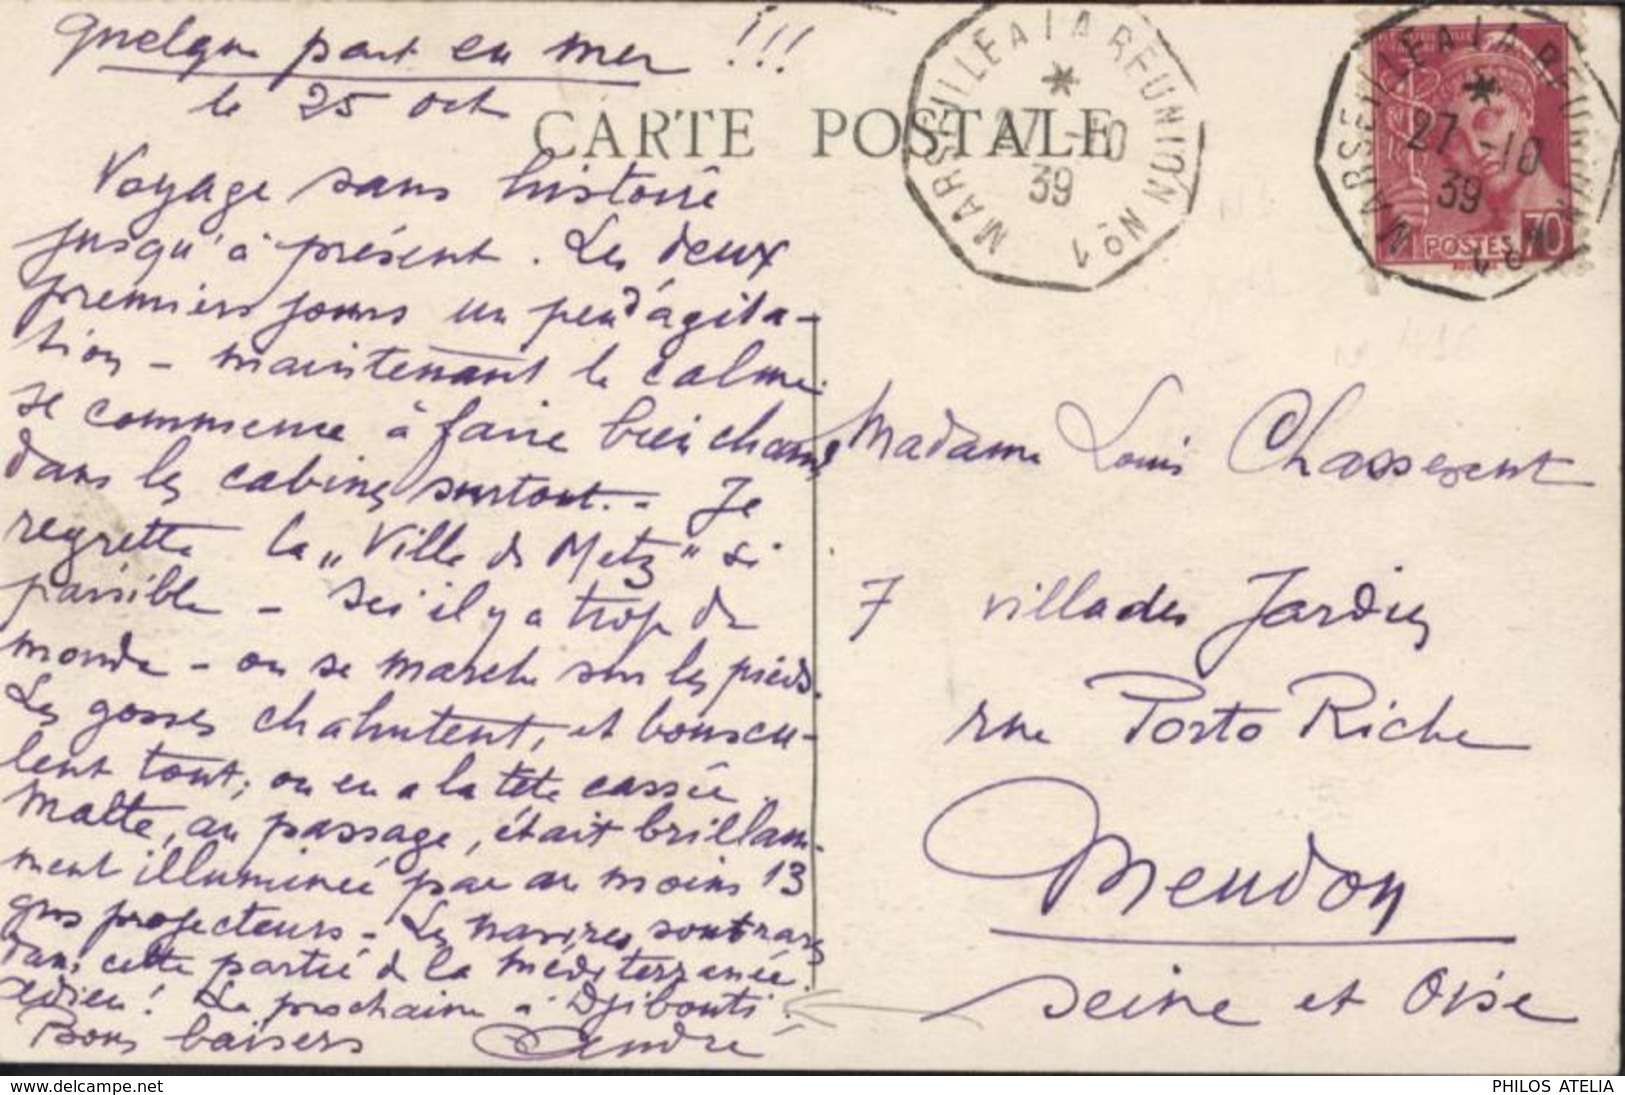 Quelque part en mer !!!
le 25 oct
CARTE POSTALE
MARSEILLE A LA REUNION No 1
*
27 -10
39
MARSEILLE A LA REUNION No 1
*
27 -10
39
POSTES 70
Voyage sans histoire
jusqu'à présent. Les deux
premiers jours un peu d'agita-
tion - maintenant le calme.
Il commence à faire bien chaud
dans les cabines surtout. - Je
regrette la "Ville de Metz" si
paisible - Ici il y a trop de
monde - on se marche sur les pieds.
Les gosses chahutent, et bouscu-
lent tout; on en a la tête cassée.
Malte, au passage, était brillam-
ment illuminée par au moins 13
gros projecteurs - Les navires sont rares
dans cette partie de la méditerranée.
Adieu ! La prochaine à Djibouti !
Bons baisers André
Madame Louis Chasserent
7 villa des Jardies
rue Porto Riche
Meudon
Seine et Oise
www.delcampe.net
PHILOS ATELIA